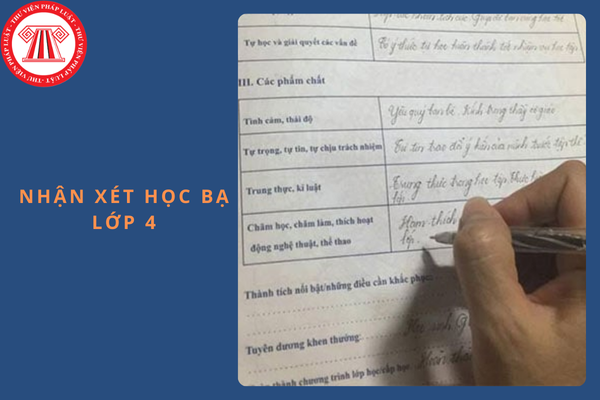 THƯ VIỆN PHÁP LUẬT - THƯ VIỆN PHÁP LUẬT - THƯ VIỆN PHÁP LUẬT
NHẬN XÉT HỌC BẠ
LỚP 4
Tự học và giải quyết các vấn đề
Có ý thức tự học hoàn thành tốt nhiệm vụ học tập
III. Các phẩm chất
Tình cảm, thái độ
Yêu quý bạn bè. Kính trọng thầy cô giáo
Tự trọng, tự tin, tự chịu trách nhiệm
Tự tin trao đổi ý kiến của mình trước tập thể
Trung thực, kỉ luật
Trung thực trong học tập, thực
lớp.
Chăm học, chăm làm, thích hoạt
Ham thích
động nghệ thuật, thể thao
lớp.
Thành tích nổi bật/những điều cần khắc phục:
Học sinh
Tuyên dương khen thưởng:
Hoàn thà
thành chương trình lớp học/cấp học.